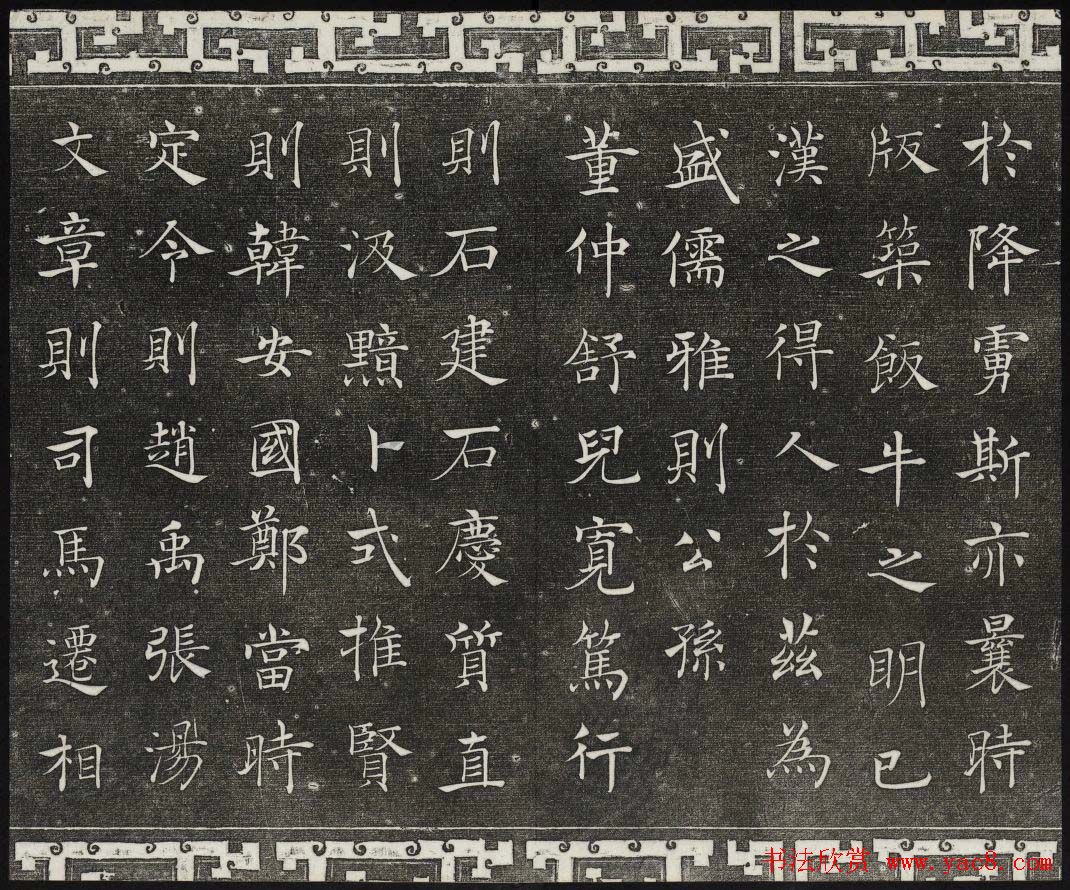 於降虜斯亦曩時
版築飯牛之明已
漢之得人於茲為
盛儒雅則公孫
董仲舒兒寬篤行
則石建石慶質直
則汲黯卜式推賢
則韓安國鄭當時
定令則趙禹張湯
文章則司馬遷相
书法欣赏 www.yac8.com